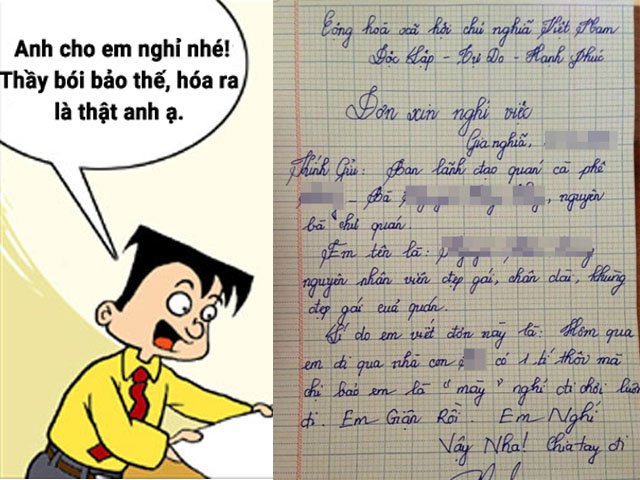 Anh cho em nghỉ nhé!
Thầy bói bảo thế, hóa ra
là thật anh ạ.
Cộng hoà xã hội chủ nghĩa Việt Nam
Độc Lập - Tự Do - Hạnh Phúc
Đơn xin nghỉ việc
Gia nghĩa,
Kính Gửi: Ban lãnh đạo quán cà phê
- Bà , nguyên
bà chủ quán.
Em tên là:
nguyên nhân viên đẹp gái, chân dài, khùng
đẹp gái của quán.
Lí do em viết đơn này là: Hôm qua
em đi qua nhà con có 1 tí thôi mà
chị bảo em là "mày" nghỉ đi chơi luôn
đi. Em Giận Rồi. Em Nghỉ
Vậy Nha! Chia tay đi